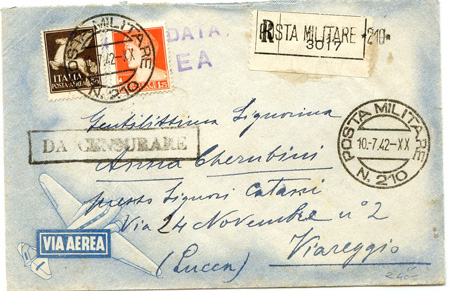 POSTA MILITARE
10-7.42-XX
N. 210
ITALIA
POSTA AEREA
DATA
EA
R
POSTA MILITARE 210
3017
POSTA MILITARE
10.-7.42-XX
N. 210
DA CENSURARE
Gentilissima Signorina
Anna Cherubini
presso Signori Catassi
Via 24 Novembre n° 2
Viareggio
(Lucca)
VIA AEREA